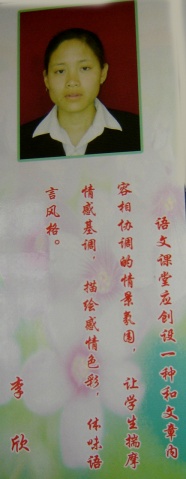 语文课堂应创设一种和文章内
容相协调的情景氛围，让学生揣摩
情感基调，描绘感情色彩，体味语
言风格。
李欣